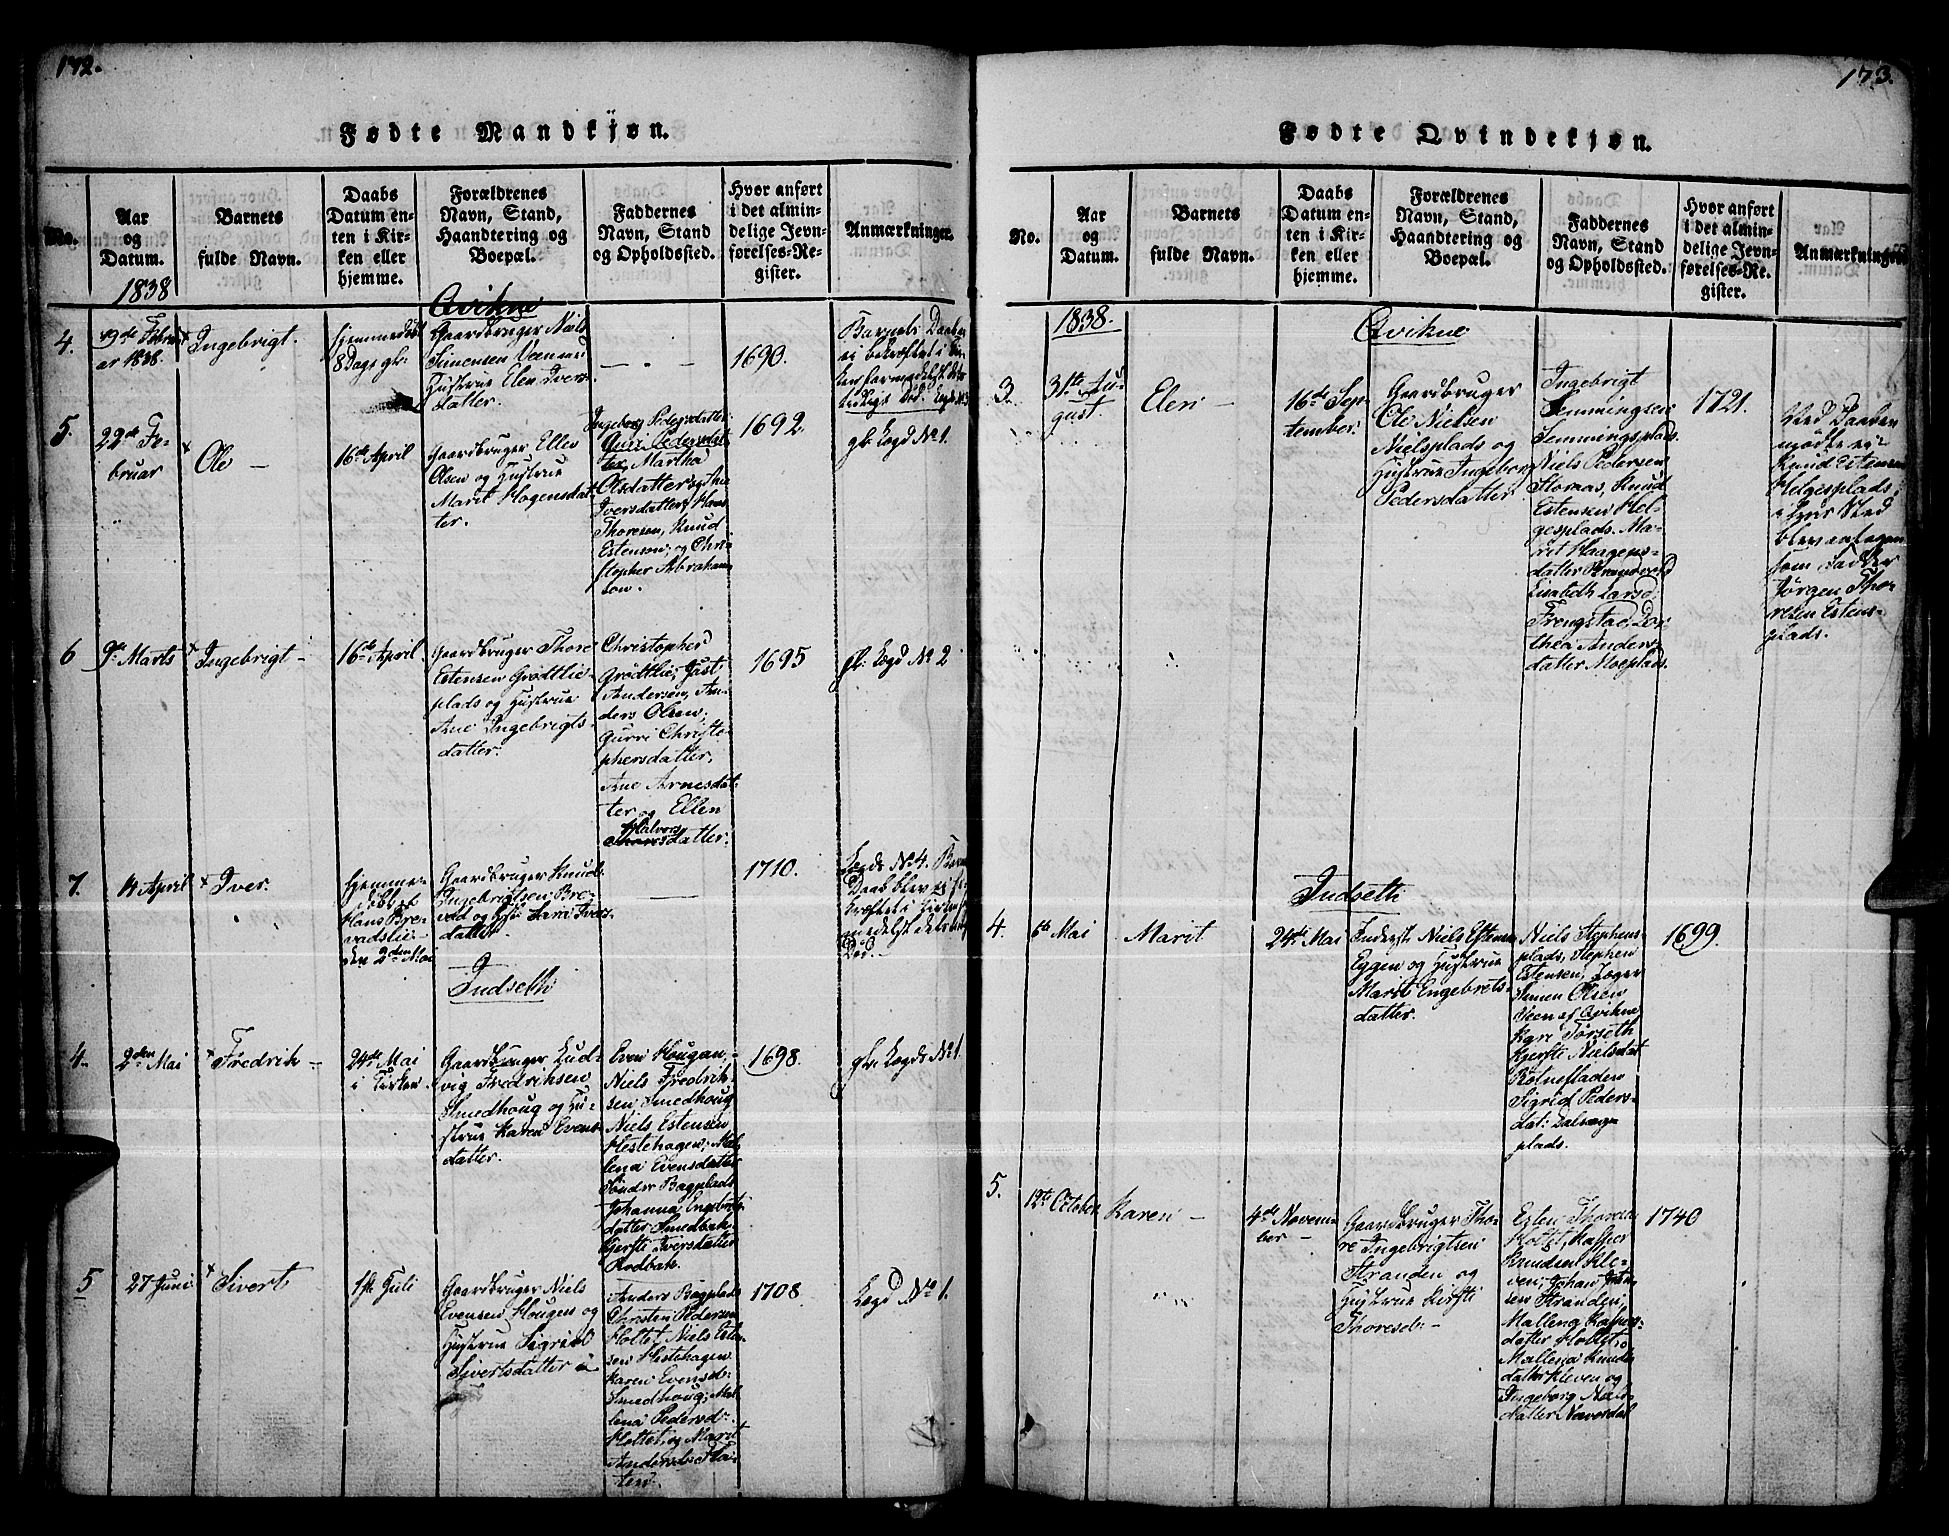 172.
Fødte Mandkjøn.
No.
Aar
og
Datum.
Barnets
fulde Navn.
Daabs
Datum en-
ten i Kir-
ken eller
hjemme.
Forældrenes
Navn, Stand,
Haandtering og
Boepæl.
Faddernes
Navn, Stand
og Opholdssted.
Hvor anført
i det almin-
delige Jevn-
førelses-Re-
gister.
Anmærkninger.
1838
Qvikne
4.
19de Febru-
ar 1838.
Ingebrigt.
hjemmedøbt
8 Dage gl.
Gaardbruger Niels
Simensen Veen and
Hustrue Elen Ivers-
datter.
— . —
1690.
Barnets Daab
ei bekræftet i Kir-
ken formedelst dets
5.
22de Fe-
bruar
Ole —
16de April
Gaardbruger Ellev
Olsen og Hustrue
Marit Hogensdat-
ter.
Ingeborg Pedersdatter
Guri Pedersdat-
ter, Martha
Olsdatter,
Iversdatter, Hans
Thoresen, Knud
Estensen, og Chri-
stopher Abraham-
sen.
1692.
gl. Kogd No 1.
6
9de Marts
Ingebrigt —
16de April
Gaardbruger Thore
Estensen Grødtlie-
plads og Hustrue
Ane Ingebrigts-
datter.
Christopher
Grødtlie, Just
Andersen, An-
ders Olsen,
Gurri Christo-
phersdatter,
Ane Arnesdat-
ter og Ellen
Halvors
datter.
1695
gl. Kogd No 2
7.
14 April
Iver.
hjemme-
døbt af
Hans Bre-
vadslie
den 2den Mai
Gaardbruger Knud
Ingebrigtsen Bre-
vad og Hu: Kari Ivers-
datter
—
1710.
Kogd: No 4.
Daab blev ei
kræftet i Kirken
medelst dets
Død.
Indseth
4.
2den Mai
Fredrik —
24de Mai
i Kirken
Gaardbruger Lud-
vig Fredriksen
Smedhoug og Hu-
strue Karen Evens-
datter.
Even Hougan,
Niels Fredrik-
sen Smedhoug
Niels Estensen
Hestehagen, Mal-
lena Evensdatter
Sønder Bagplads
Johanna Engebrets-
datter Smedbak.
Gjertie Iversdatter
Rodbak.
1698.
gl. Kogd: No 1.
5
27 Juni
Sivert
1ste Juli
Gaardbruger Niels
Evensen Hougen og
Hustrue Sigrid
Sivertsdatter
Anders Bagplads
Christen Pedersen
Hottet, Niels Esten-
sen Hestehagen
Karen Evensd:
Smedhoug, Mal-
lena Pedersd:
Hottet, og Marit
Andersd: Flø-
ten.
1708
Kogd No 1.
173.
Fødte Qvindekjøn.
No.
Aar
og
Datum.
Barnets
fulde Navn.
Daabs
Datum en-
ten i Kir-
ken eller
hjemme.
Forældrenes
Navn, Stand,
Haandtering og
Boepæl.
Faddernes
Navn, Stand
og Opholdssted.
Hvor anført
i det almin-
delige Jevn-
førelses-Re-
gister.
Anmærkninger.
1838.
Qvikne
3.
31te Au-
gust
Elen —
16de Sep-
tember.
Gaardbruger
Ole Nielsen
Nielsplads og
Hustrue Ingeborg
Pedersdatter
Ingebrigt
Semmingsen
Semmingsplads.
Niels Pedersen
Stormas, Knud
Estensen Hel-
gesplads. Ma-
rit Haagens-
datter
Elisabeth Larsd:
Frengstad, Do-
thea Anders-
datter Moeplads.
1721.
Ved Daaben
mødte ei
Knud Estensen
Helgesplads,
i hvis Sted
blev antagen
som Fadder
Jørgen Tho-
resen Estens-
plads.
Indseth
4.
6te Mai
Marit
24de Mai
Inderst Niels Estensen
Eggen og Hustrue
Marit Engebrets-
datter.
Niels Stephens-
plads, Stephen
Estensen, Jæger
Simen Olsen
Veen af Qvikne
Kari Tørseth
Gjertie Nielsdat
Sigrid Peders-
dat: Dalsægg-
plads.
1699.
5.
12te October
Karen —
4de Novem-
ber —
Gaardbruger Tho-
re Ingebrigtsen
Stranden og
Hustrue Kirsti
Thoresd: —
Esten Thoresen
Hottet, Kasper
Knudsen Kle-
ven, Johan
sen Stranden,
Malleng Kaspers-
datter Hottet,
Mallena Knuds-
datter Kleven og
Ingeborg Niels-
datter Næverdal
1740